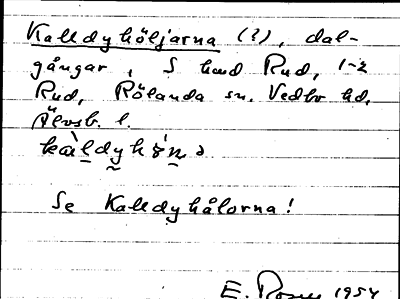 Kalldyhöljarna (?), dal-
gångar, S hmd Rud, 1-2
Rud, Rölanda sn. Vedbo hd.
Älvsb. l.
Se Kalldyhålorna!
E. 1954